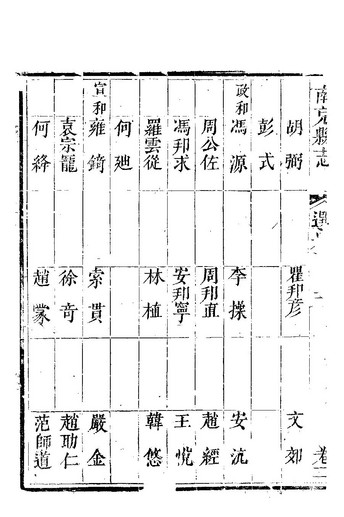 南充縣志
選
卷三
胡弼
瞿邦彦
文郊
彭式
政和
馮源
李操
安沆
周公佐
周邦直
趙經
馮邦求
安邦寧
王悅
羅雲從
林植
韓悠
何廸
宣和
雍鑄
索貫
嚴金
袁宗龍
徐奇
趙助仁
何絳
趙蒙
范師道